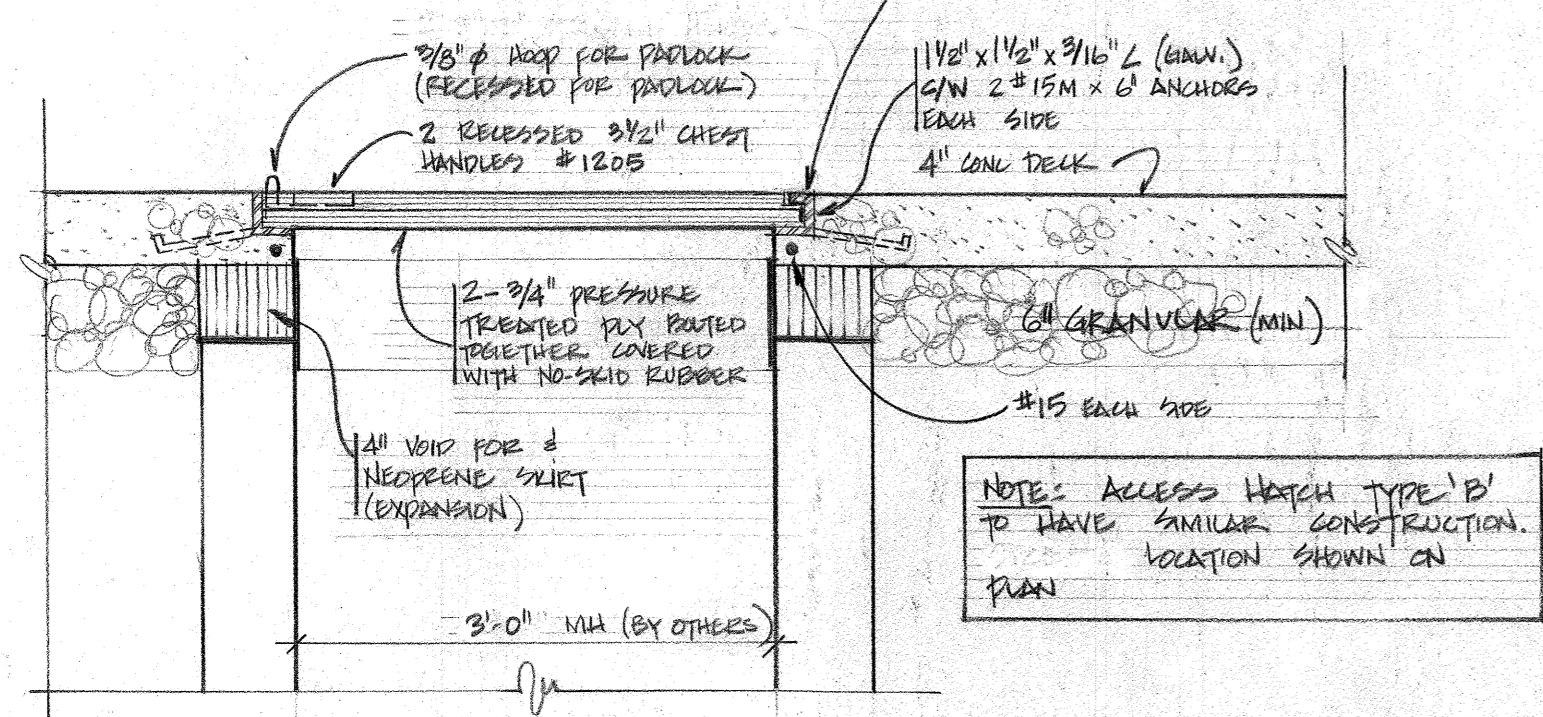 3/8" φ HOOP FOR PADLOCK
(RECESSED FOR PADLOCK)
2 RECESSED 3 1/2" CHEST
HANDLES #1205
1 1/2" x 1 1/2" x 3/16" L (GALV.)
C/W 2 #15M x 6" ANCHORS
EACH SIDE
4" CONC DECK
2 - 3/4" PRESSURE
TREATED PLY BOLTED
TOGETHER COVERED
WITH NO-SKID RUBBER
6" GRANULAR (MIN)
#15 EACH SIDE
4" VOID FOR &
NEOPRENE SKIRT
(EXPANSION)
NOTE: ACCESS HATCH TYPE 'B'
TO HAVE SIMILAR CONSTRUCTION.
LOCATION SHOWN ON
PLAN
3'-0" MH (BY OTHERS)